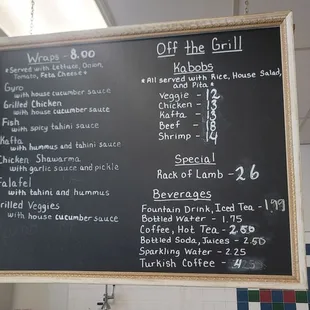 Wraps - 8.00
*Served with Lettuce, Onion,
Tomato, Feta Cheese*
Gyro
with house cucumber sauce
Grilled Chicken
with house cucumber sauce
Fish
with spicy tahini sauce
Kafta
with hummus and tahini sauce
Chicken Shawarma
with garlic sauce and pickle
Falafel
with tahini and hummus
Grilled Veggies
with house cucumber sauce
Off the Grill
Kabobs
*All served with Rice, House Salad,
and Pita*
Veggie - 12
Chicken - 13
Kafta - 13
Beef - 18
Shrimp - 14
Special
Rack of Lamb - 26
Beverages
Fountain Drink, Iced Tea - 1.99
Bottled Water - 1.75
Coffee, Hot Tea - 2.50
Bottled Soda, Juices - 2.50
Sparkling Water - 2.25
Turkish Coffee -